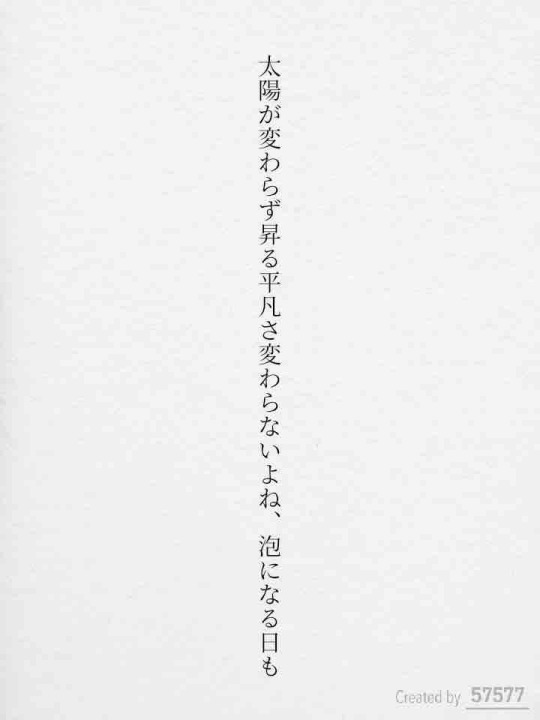 太陽が変わらず昇る平凡さ変わらないよね、泡になる日も
Created by 57577